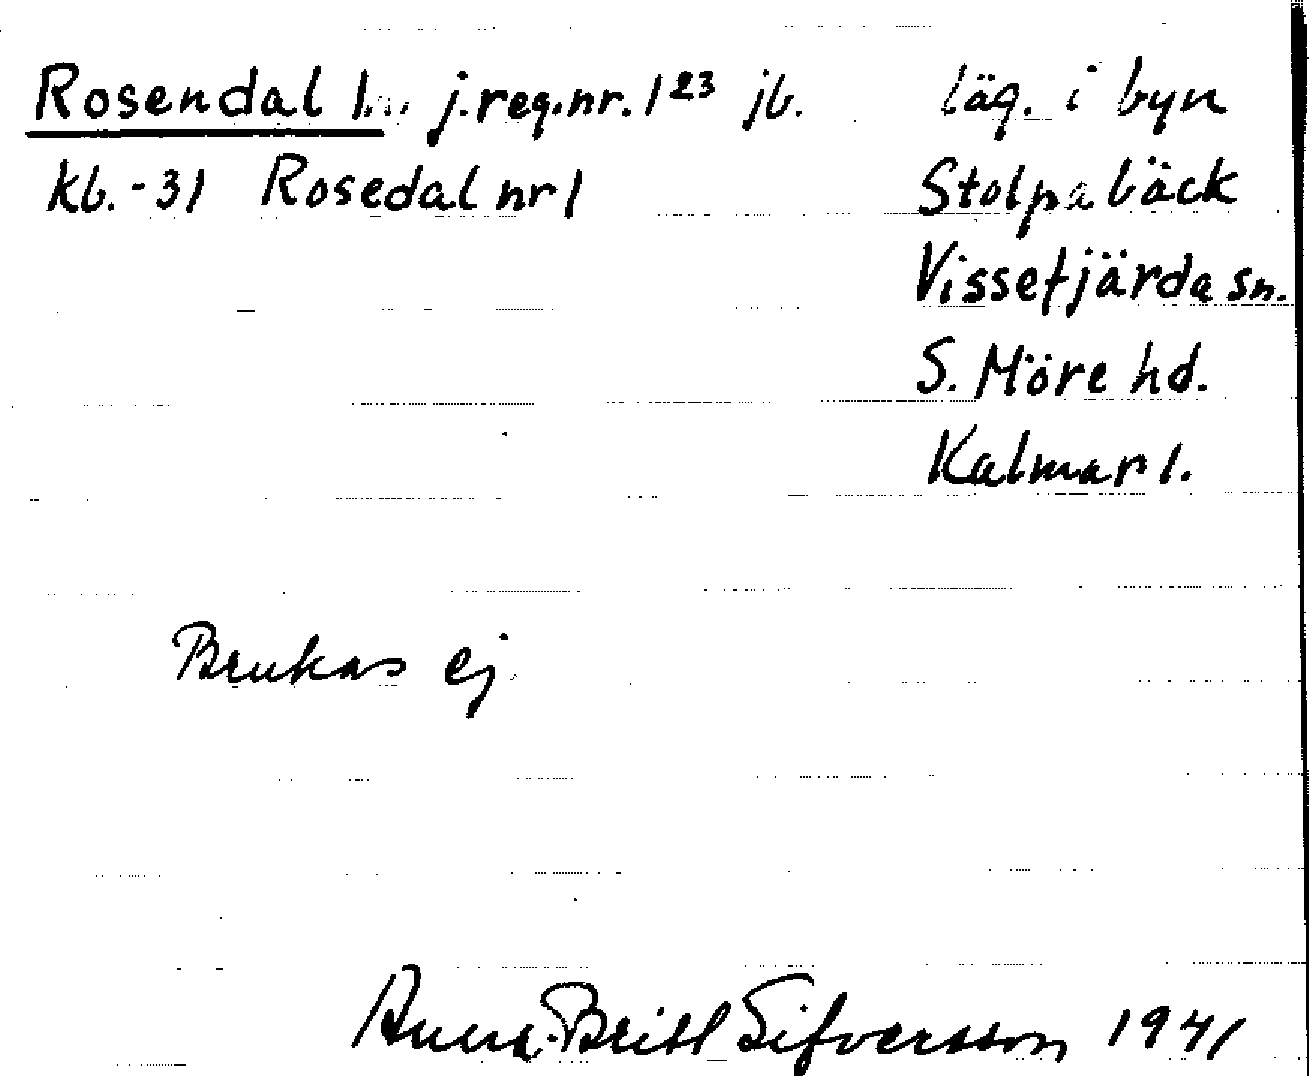 Rosendal j.reg.nr. 1²³ jb.
läg. i byn
kb.-31 Rosedal nr 1
Stolpabäck
Vissefjärda sn.
S. Möre hd.
Kalmar l.
Brukas ej.
Anna-Britt Sifversson 1941